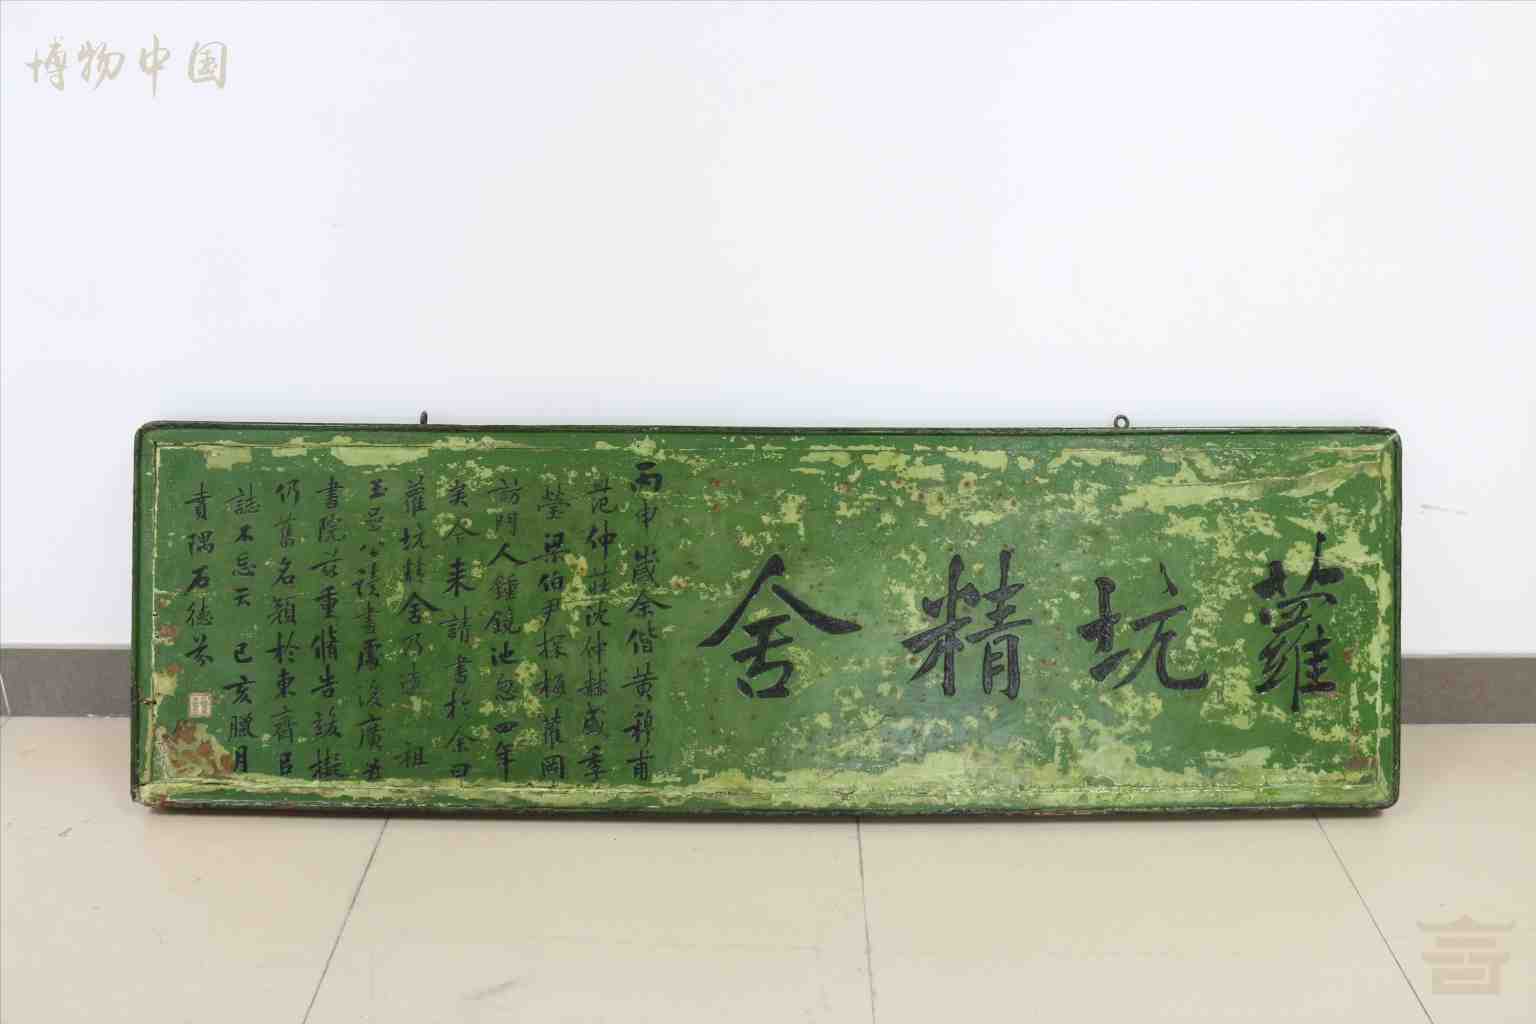 博物中国
蘿坑精舍
丙申歲余偕黄穆甫
范仲莊沈仲赫盛季
瑩梁伯尹探梅蘿岡
訪門人鍾鏡池忽四年
矣今来請書於余曰
蘿坑精舍乃遠祖
玉喦公讀書處後廣為
書院兹重脩告竣擬
仍舊名顏於東齋吕
誌不忘云 己亥臘月
賁隅石德芬